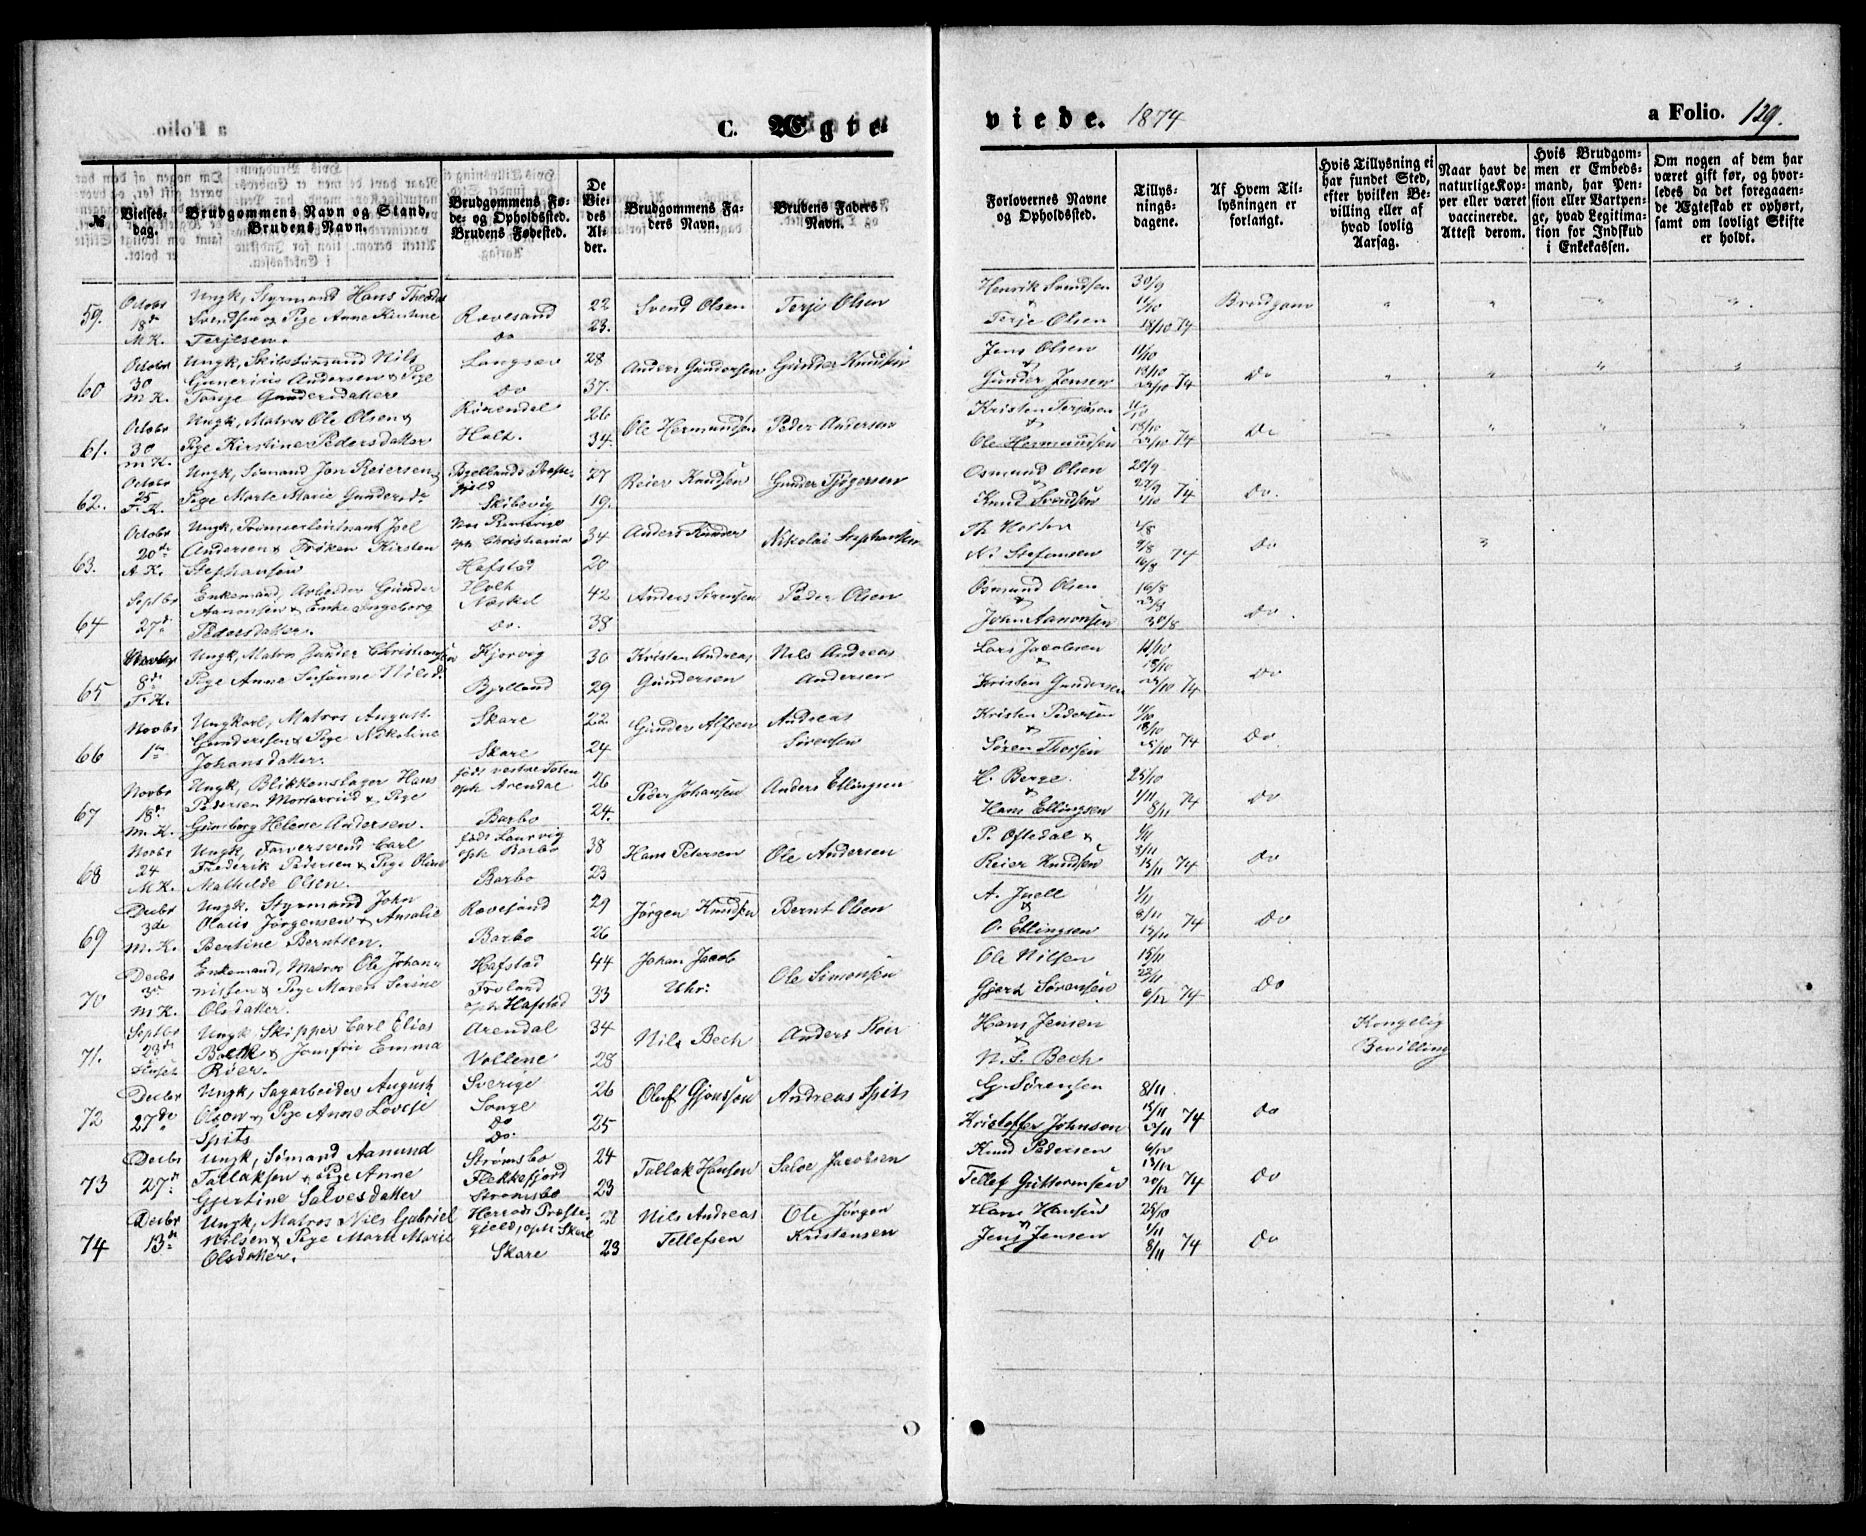 C. Ægte-
viede. 1874
a Folio. 129.
№
Vielses-
dag.
Brudgommens Navn og Stand,
Brudens Navn.
Brudgommens Fø-
de- og Opholdssted.
Brudens Fødested.
De
Vie-
des
Al-
der.
Brudgommens Fa-
ders Navn.
Brudens Faders
Navn.
Forlovernes Navne
og Opholdssted.
Tillys-
nings-
dagene.
Af Hvem Til-
lysningen er
forlangt.
Hvis Tillysning ei
har fundet Sted,
efter hvilken Be-
villing eller af
hvad lovlig
Aarsag.
Naar havt de
naturlige Kop-
per eller været
vaccinerede.
Attest derom.
Hvis Brudgom-
men er Embeds-
mand, har Pen-
sion eller Vartpen-
ge, hvad Legitima-
tion for Indskud
i Enkekassen.
Om nogen af dem har
været gift før, og hvor-
ledes da det foregaaen-
de Ægteskab er ophørt,
samt om lovligt Skifte
er holdt.
59. Octobr 18de M.K. Ungk, Styrmand Hans Theodor
Svendsen og Pige Anne Kirstine
Terjesen. Rævesand Do 22 23. Svend Olsen Terje Olsen Henrik Svendsen & Terje Olsen 30/9 11/10 18/10 74 Brudgom
60 Octobr 30 M.K. Ungk, Nils
Gunerius Andersen & Pige
Gundersdatter Langsæv Do 28 37. Anders Gundersen Gunder Knudsen Jens Olsen & Gunder Jensen 11/10 18/10 25/10 74 Do
61. Octobr 30 M.K. Ungk, Matros Ole Olsen &
Pige Kirstine Pedersdatter Holt. 26 34. Ole Hermundsen Peder Andersen Kristen Terjesen & Ole Hermundsen 11/10 18/10 25/10 74 Do
62. Octobr 25 F.K. Ungk, Sømand Jon Reiersen &
Pige Marte Marie Gundersdr Bjellands Præste-
gjeld
Skibsvig 27 19. Reier Knudsen Gunder Osmund Olsen & Knud Svendsen 74 Do.
63. Octobr 20de A.K. Ungk, Premierleitnant Joel
Andersen & Frøken Kirsten
Stephansen oph Christiania
Hafstad 34 20 Anders Nikolai Stephansen N. Stefansen 2/8 9/8 16/8 74 Do
64 Septbr 27de Enkemand, Arbeider Gunder
Aanonsen & Enke Ingeborg
Pedersdatter. Holt
Næskil
Do. 42 38 Anders Sørensen Peder Olsen Osmund Olsen & John Aanonsen 16/8 23/8 30/8 Do
65 Novbr 8de F.K. Ungk, Matros Gunder Christiansen
Pige Anne Susanne Nilsdr Kjorvig
Bjelland 30 29 Kristen Andreas
Gundersen Nils Andreas
Andersen Lars Jacobsen & Kristen Gundersen 11/10 18/10 25/10 74 Do
66 Novbr 1ste Ungkarl, Matros August
Gundersen & Pige Nikoline
Johansdatter. Skare
Skare 22 24 Gunder Alfsen Andreas
Sørensen Kristen Pedersen & Søren 11/10 18/10 25/10 74 Do
67 Novbr 18de M.K. Ungk, Blikkenslager Hans
Pedersen Morterrud & Pige
Gunborg Helene Andersen. født vestre Toten
oph Arendal
Barbo 26 24. Peder Johansen Anders Ellingsen H. Berge. & Hans Ellingsen 25/10 1/11 8/11 74 Do
68 Novbr 24 M.K. Ungk, Farversvend Carl
Fredrik Pedersen & Pige Oline
Mathilde Olsen. født Laurvig
oph Barbo
Barbo 38 23 Hans Petersen Ole Andersen P. Oftedal & Reier Knudsen 1/11 8/11 15/11 74 Do
69 Decbr 3de M.K. Ungk. Styrmand John
Olaus Jørgensen & Amalie
Bertine Berntsen. Rævesand
Barbo 29 26 Jørgen Knudsen Bernt Olsen A. Juell & O. Ellingsen 1/11 8/11 15/11 74 Do
70 Decbr 3de M.K. Enkemand, Matros Ole Johan-
nissen & Pige Maren Serine
Olsdatter. Hafstad
Froland
oph Hafstad 44 33 Johan Jacob
Uhr: Ole Simonsen Ole Nilsen Gjert Sørensen 15/11 22/11 6/12 74 Do
71. Septbr 23de Huset Ungk, Skipper Carl Elias
Beck & Jomfru Emma
Röer. Arendal
Vollene 34 28 Nils Bech Anders Röer Hans Jensen & N. S. Bech Kongelig
Bevilling
72 Decbr 27de Ungk, Sagarbeider August
Olson & Pige Anne Lovise
Spits Sverige
Songe
Do
Do. 26 25 Oluf Gjonsson Andreas Spits G. Sørensen Kristoffer Johnson 8/11 15/11 74 Do
73 Decbr 27de Ungk, Sømand Aanund
Tallaksen & Pige Anne
Gjertine Salvesdatter Strømsbo
Flekkefjord
Strømsbo 24 23 Tallak Hansen Salve Jacobsen Knud Pedersen Tellef Guttormsen 6/12 13/12 20/12 74 Do
74 Decbr 13de Ungk, Matros Nils Gabriel
Nilsen & Pige Marte Marie
Olsdatter. Herrods Præste-
gjeld, oph Skare
Skare 23 Nils Andreas
Tellefsen Ole Jørgen
Kristensen Hans Hansen & Jens Jensen 25/10 1/11 8/11 74 Do